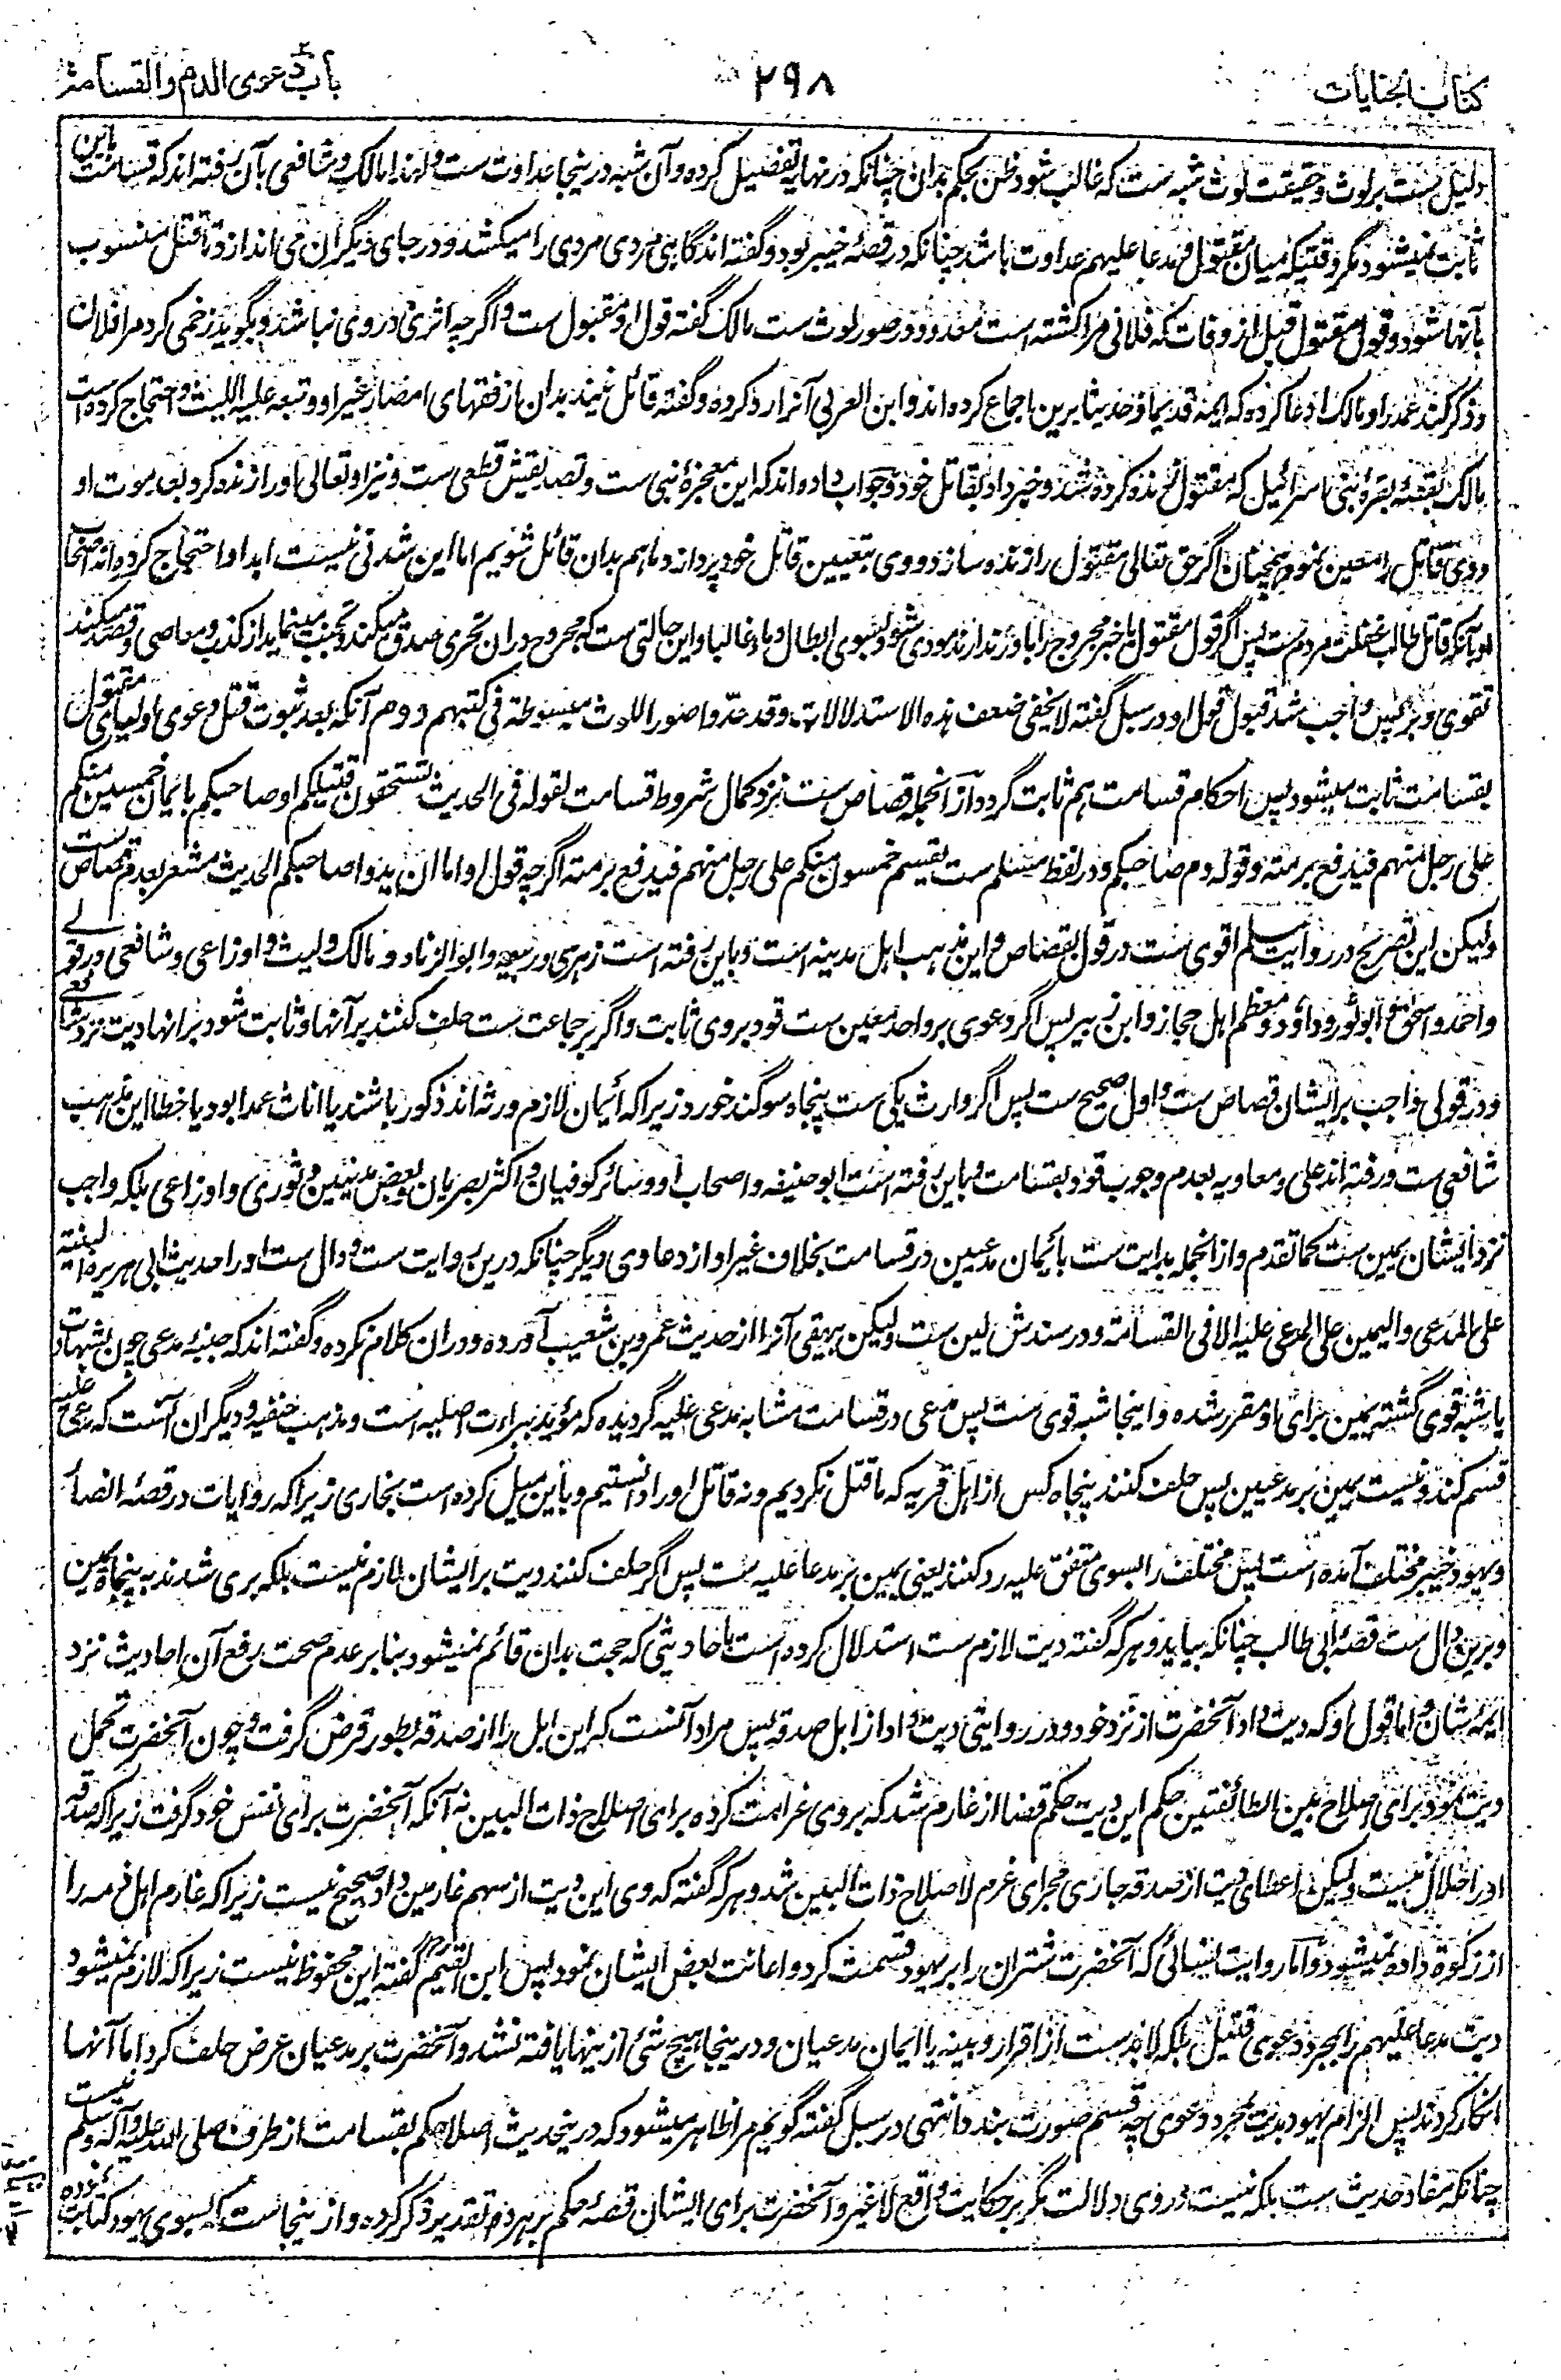 کتاب الجنایات
۲۹۸
باب دعوی الدم والقسامة
دلیل ست بر لوث و حقیقت لوث شبه ست که غالب شود ظن بحکم بدان چنانکه در نهایه تفصیل کرده و آن شبه درینجا عداوت ست و لهذا مالک و شافعی بآن رفته اند که قسامت باین
ثابت نمیشود مگر وقتیکه میان مقتول و مدعا علیهم عداوت باشد چنانکه در قصهٔ خیبر بود و گفته اند گاهی مردی مردی را میکشد و در جای دیگران می اندازد تا قتل منسوب
بآنها شود و قول مقتول قبل از وفات که فلانی مرا کشته است معدود در صور لوث ست مالک گفته قول او مقبول ست و اگرچه اثری در وی نباشد و بگوید زخمی کرد مرا فلان
و ذکر کند عمد را و مالک ادعا کرده که ایمه قدیما و حدیثا برین اجماع کرده اند و ابن العربی آنرا رد کرده و گفته قائل نیند بدان از فقهای امصار غیر او و تبعه علیه اللیث و احتجاج کرده است
مالک بقصهٔ بقرهٔ بنی اسرائیل که مقتول زنده کرده شد و خبر داد بقاتل خود و جواب داده اند که این معجزهٔ نبی ست و تصدیقش قطعی ست و نیز او تعالی او را زنده کرد بعد موت او
و وی قاتل را معین نمود همچنان اگر حق تعالی مقتول را زنده سازد و وی بتعیین قاتل خود پردازد ما هم بدان قائل شویم اما این شدنی نیست ابدا و احتجاج کرده اند اصحاب
او بآنکه قاتل طالب غفلت مردم ست پس اگر قول مقتول یا خبر مجروح را باور ندارند مودی شود بسوی ابطال دماء غالبا و این حالتی ست که مجروح دران تحری صدق میکند و تجنب مینماید از کذب و معاصی و قصد میکند
تقوی و بر پس واجب شد قبول قول او و در سبل گفته لا یخفی ضعف هذه الاستدلالات وقد عدّوا صور اللوث مبسوطة فی کتبهم دوم آنکه بعد ثبوت قتل دعوی اولیای مقتول
بقسامت ثابت میشود پس احکام قسامت هم ثابت گردد از آنجمله قصاص ست نزد کمال شروط قسامت لقوله فی الحدیث تستحقون قتیلکم او صاحبکم بایمان خمسین منکم
علی رجل منهم فیدفع برمته وقوله دم صاحبکم و در لفظ مسلم ست یقسم خمسون منکم علی رجل منهم فیدفع برمته اگرچه قول او اما ان یدوا صاحبکم الحدیث مشعر بعدم قصاص ست
ولیکن این تصریح در روایت مسلم اقوی ست در قول بقصاص و این مذهب اهل مدینه است و باین رفته است زهری و ربیعه و ابوالزناد و مالک و لیث و اوزاعی و شافعی در قولے
و احمد و اسحق و ابو ثور و داؤد و معظم اهل حجاز و ابن زبیر پس اگر دعوی بر واحد معین ست قود بر وی ثابت و اگر بر جماعت ست حلف کنند بر آنها و ثابت شود بر انها دیت نزد شافعی
و در قولی واجب بر ایشان قصاص ست و اول صحیح ست پس اگر وارث یکی ست پنجاه سوگند خورد زیرا که ایمان لازم ورثه اند ذکور باشند یا اناث عمدا بود یا خطا این مذهب
شافعی ست و رفته اند علی و معاویه بعدم وجوب قود بقسامت و باین رفته است ابو حنیفه و اصحاب او و سائر کوفیان و اکثر بصریان و بعض مدنیین و ثوری و اوزاعی بلکه واجب
نزد ایشان یمین ست کما تقدم و از انجمله بدایت ست بایمان مدعیین در قسامت بخلاف غیر او از دعاوی دیگر چنانکه درین روایت ست و دال ست او را حدیث ابی هریره البینة
علی المدعی والیمین علی المدعی علیه الا فی القسامة و در سندش لین ست ولیکن بیهقی آنرا از حدیث عمرو بن شعیب آورده و دران کلام نکرده و گفته اند که جنبهٔ مدعی چون بشهادت
یا شبه قوی گشته یمین برای او مقرر شده و اینجا شبه قوی ست پس مدعی در قسامت مشابه مدعی علیه گردیده که مؤید ببراءت اصلیه است و مذهب حنفیه و دیگران آنست که مدعی علیه
قسم کند و نیست یمین بر مدعیین پس حلف کنند پنجاه کس از اهل قریه که ما قتل نکردیم و نه قاتل او را دانستیم و باین میل کرده است بخاری زیرا که روایات در قصهٔ انصار
و یهود خیبر مختلف آمده است پس مختلف را بسوی متفق علیه رد کنند یعنی یمین بر مدعا علیه ست پس اگر حلف کنند دیت بر ایشان لازم نیست بلکه بری شدند به پنجاه یمین
و برین دال ست قصهٔ ابی طالب چنانکه بیاید و هر که گفته دیت لازم ست استدلال کرده است باحادیثی که حجت بدان قائم نمیشود بنابر عدم صحت رفع آن احادیث نزد
ایمهٔ شان و اما قول او که دیت داد آنحضرت از نزد خود و در روایتی دیت داد از ابل صدقه پس مراد آنست که این ابل را از صدقه بطور قرض گرفت و چون آنحضرت تحمل
دیت نمود برای اصلاح بین الطائفتین حکم این دیت حکم قضا از غارم شد که بر وی غرامت کرده برای اصلاح ذات البین نه آنکه آنحضرت برای نفس خود گرفت زیرا که صدقه
او را حلال نیست ولیکن اعطای دیت از صدقه جاری مجرای غرم لاصلاح ذات البین شد و هر که گفته که وی این دیت از سهم غارمین داد صحیح نیست زیرا که غارم اهل ذمه را
از زکوة داده نمیشود و اما روایت نسائی که آنحضرت شتران را بر یهود قسمت کرد و اعانت بعض ایشان نمود پس ابن القیم رح گفته این محفوظ نیست زیرا که لازم نمیشود
دیت مدعا علیهم را بمجرد دعوی قتیل بلکه لابد ست از اقرار و بینه یا ایمان مدعیان و درینجا هیچ شئ از ینها یافته نشد و آنحضرت بر مدعیان عرض حلف کرد اما آنها
انکار کردند پس الزام یهود بدیت بمجرد دعوی چه قسم صورت بندد انتهی در سبل گفته گویم مرا ظاهر میشود که درینحدیث اصلا حکم بقسامت از طرف صلی الله علیه وآله وسلم نیست
چنانکه مفاد حدیث ست بلکه نیست در وی دلالت مگر بر حکایت واقع لا غیر و آنحضرت برای ایشان قصهٔ حکم بر هر دو تقدیر ذکر کرده و از ینجا ست که بسوی یهود کتابت نموده